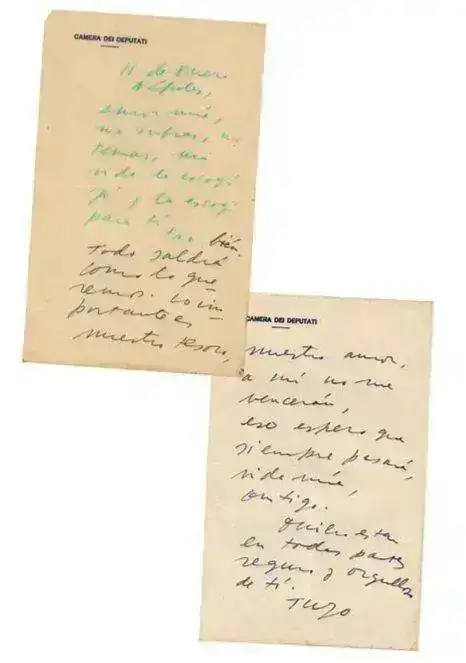 CAMERA DEI DEPUTATI
11 de Enero
Nápoles,
amor mío,
no sufras, no
temas, mi
vida la escogí
yo y la escogí
para ti
bién.
Todo saldrá
como lo que
remos. Lo im
portante es
nuestro tesoro,
CAMERA DEI DEPUTATI
nuestro amor,
a mí no me
vencerán,
eso espero que
siempre pasará,
vida mía,
contigo.
Quiero estar
en todas partes
seguro y orgulloso
de tí.
TUYO